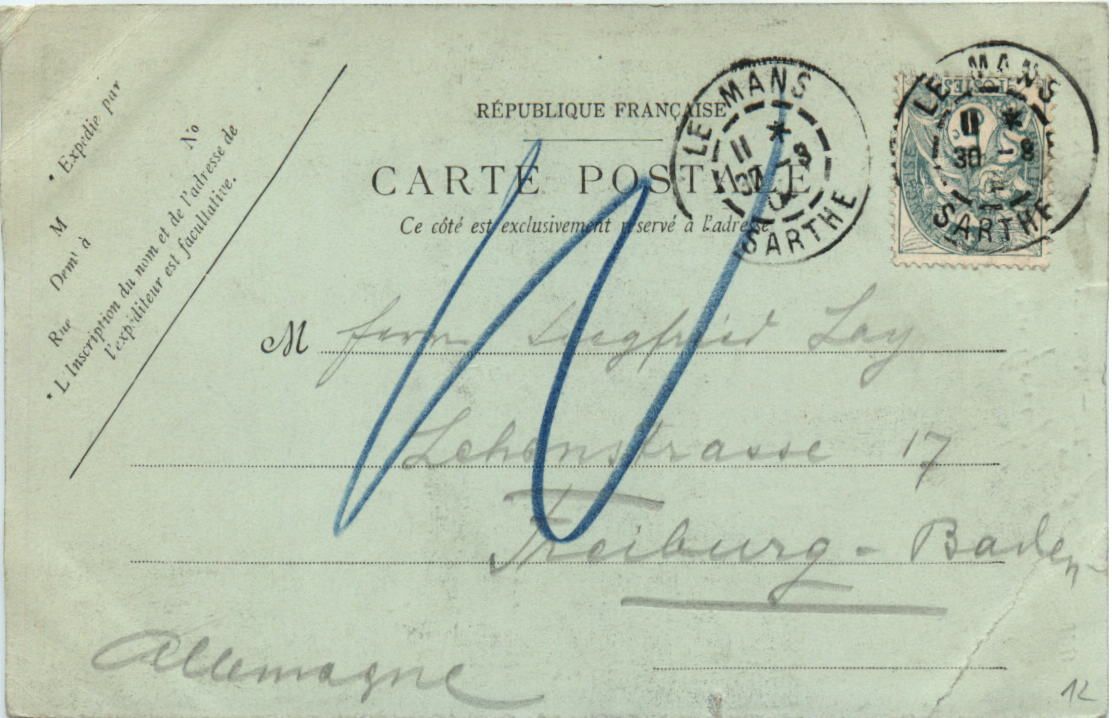 RÉPUBLIQUE FRANÇAISE
CARTE POSTALE
Ce côté est exclusivement réservé à l'adresse.
LE MANS
11 *
30 -8
SARTHE
LE MANS
11 *
30 -8
SARTHE
POSTES
* Expédie par
M
Demt à
Rue No
* L'Inscription du nom et de l'adresse de
l'expéditeur est facultative.
M Herrn Siegfried Lay
Lehenstrasse 17
Freiburg - Baden
Allemagne
12